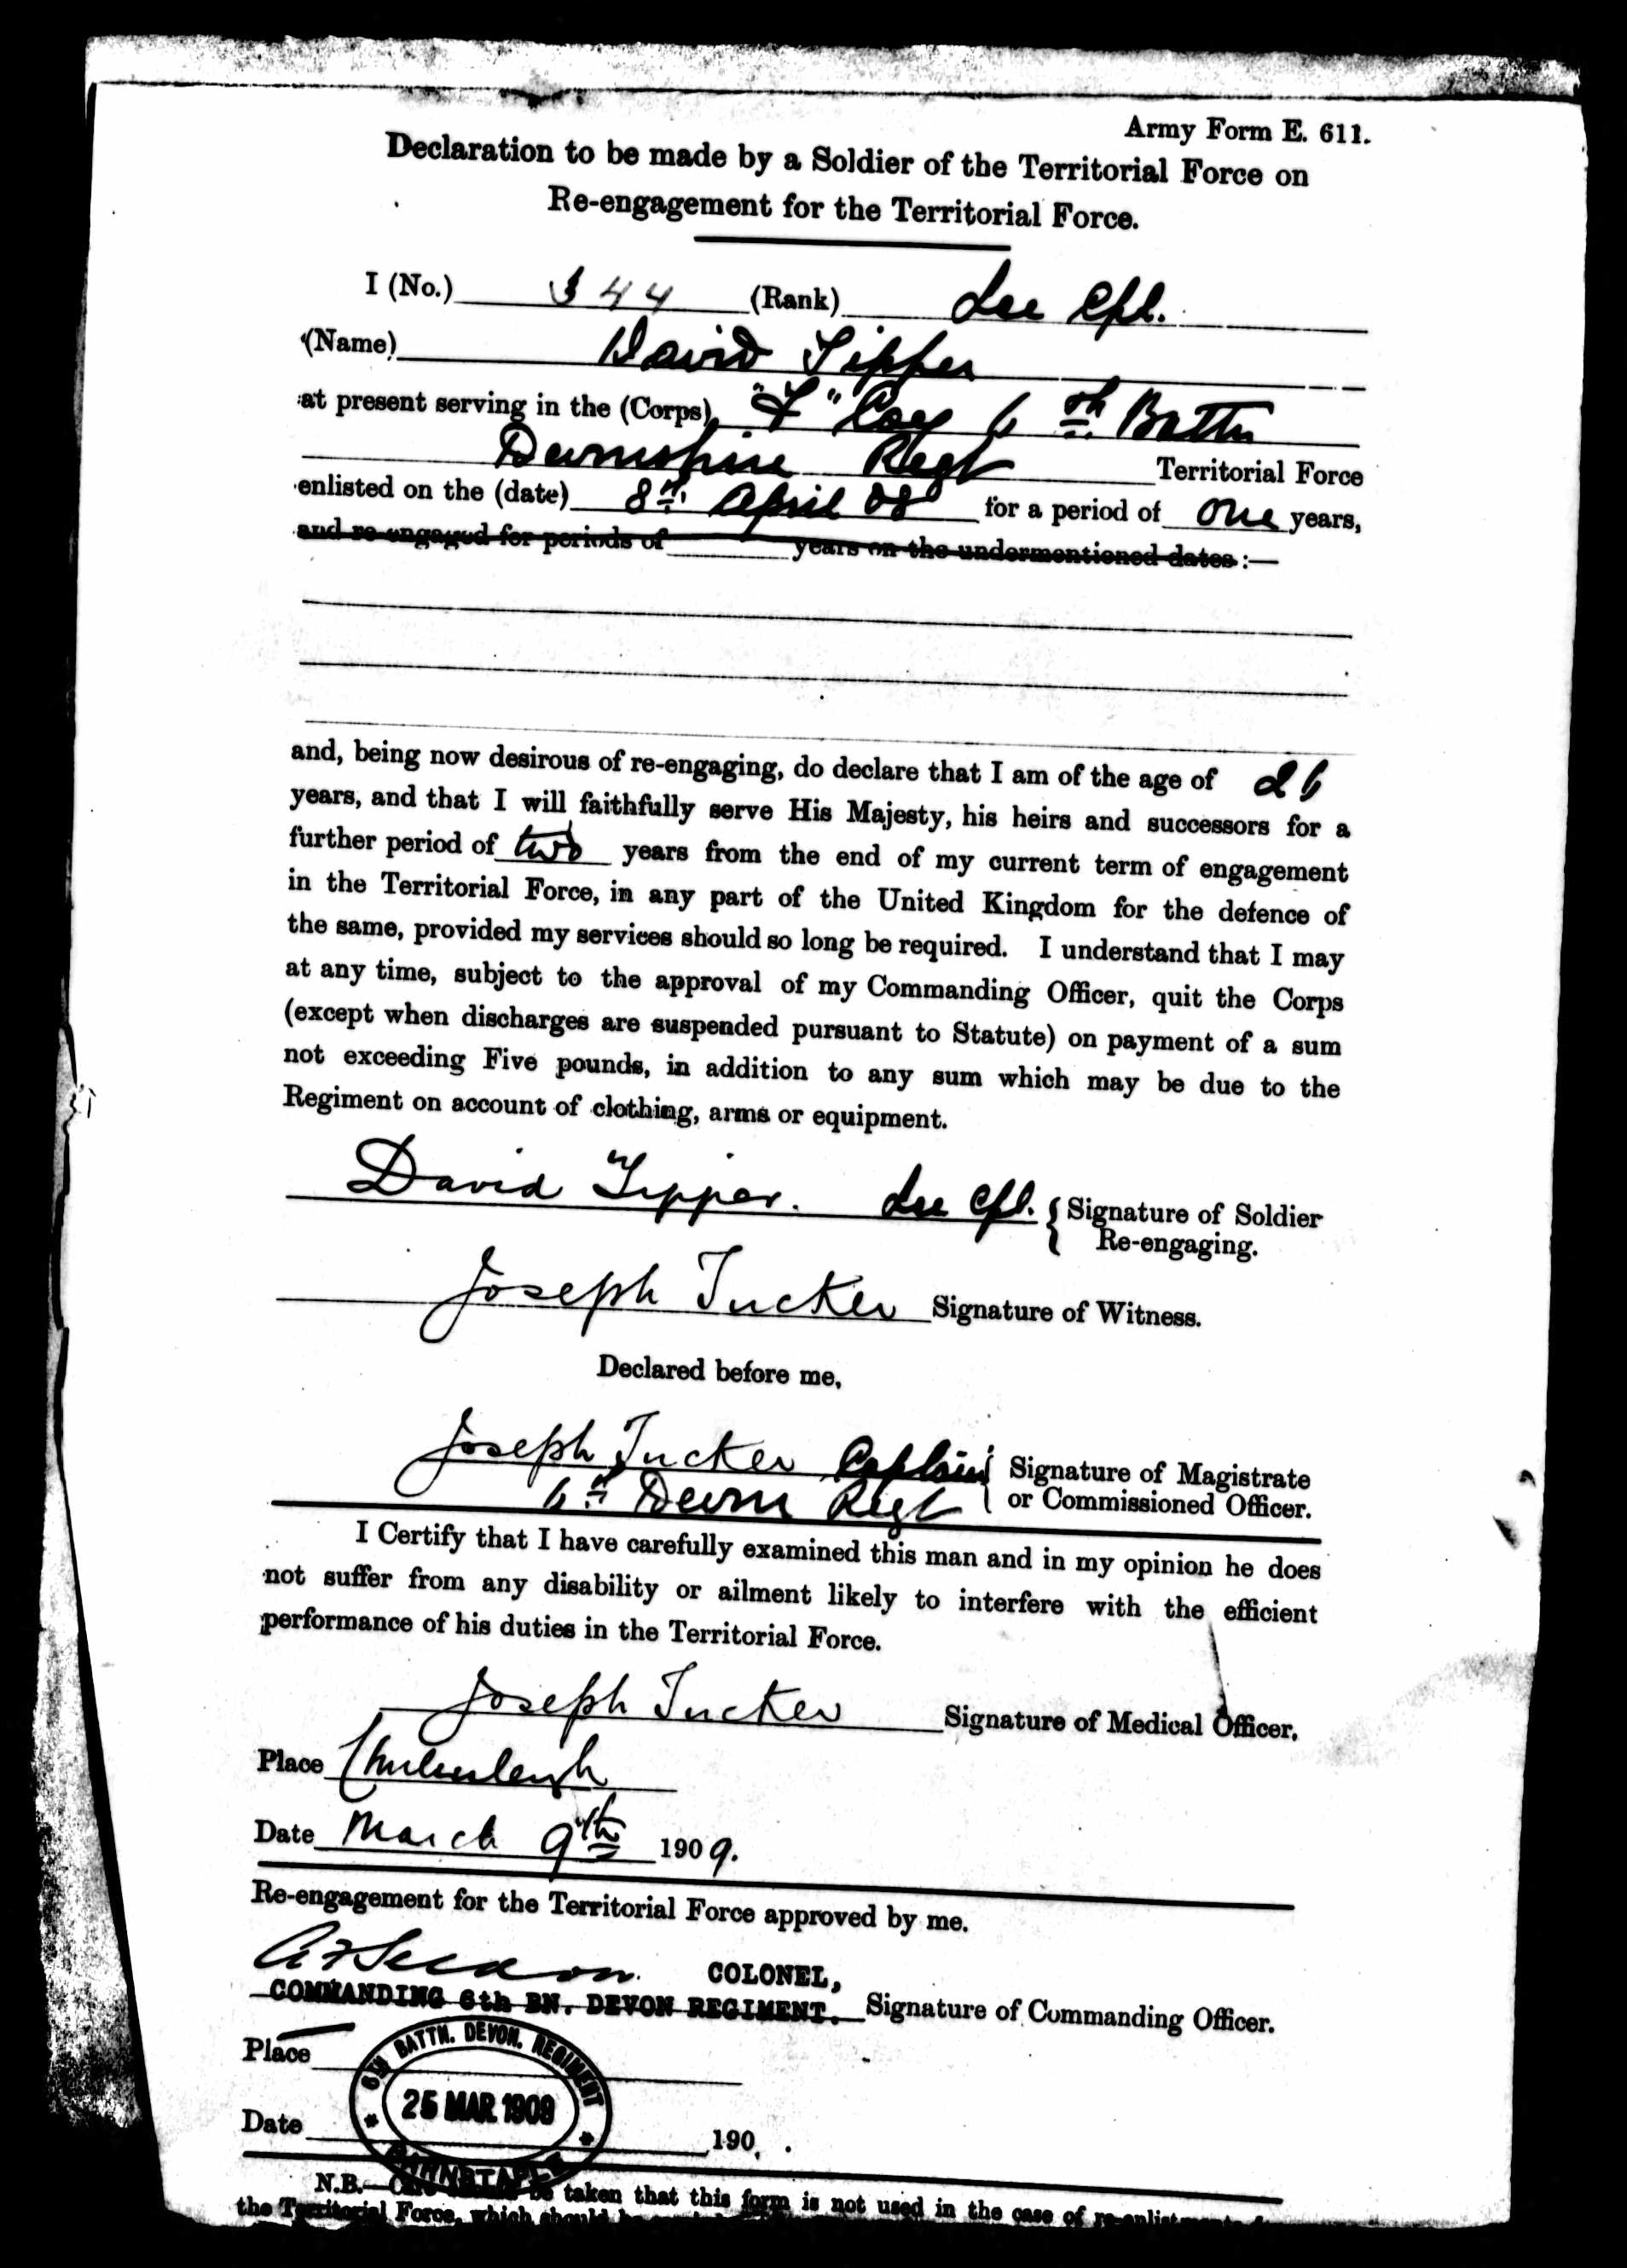 Army Form E. 611.
Declaration to be made by a Soldier of the Territorial Force on
Re-engagement for the Territorial Force.
I (No.) 344 (Rank) Lce Cpl.
(Name) David Tipper
at present serving in the (Corps) Coy 6th Battn
Devonshire Regt Territorial Force
enlisted on the (date) 8th April 08 for a period of one years,
and re-engaged for periods of years on the undermentioned dates :—
and, being now desirous of re-engaging, do declare that I am of the age of 26
years, and that I will faithfully serve His Majesty, his heirs and successors for a
further period of two years from the end of my current term of engagement
in the Territorial Force, in any part of the United Kingdom for the defence of
the same, provided my services should so long be required. I understand that I may
at any time, subject to the approval of my Commanding Officer, quit the Corps
(except when discharges are suspended pursuant to Statute) on payment of a sum
not exceeding Five pounds, in addition to any sum which may be due to the
Regiment on account of clothing, arms or equipment.
David Tipper. Lce Cpl. { Signature of Soldier
Re-engaging.
Joseph Tucker Signature of Witness.
Declared before me,
Joseph Tucker Captain { Signature of Magistrate
6th Devon Regt or Commissioned Officer.
I Certify that I have carefully examined this man and in my opinion he does
not suffer from any disability or ailment likely to interfere with the efficient
performance of his duties in the Territorial Force.
Joseph Tucker Signature of Medical Officer.
Place Chulmleigh
Date March 9th 1909.
Re-engagement for the Territorial Force approved by me.
COLONEL,
COMMANDING 6th BN. DEVON REGIMENT. Signature of Commanding Officer.
Place
6TH BATTN. DEVON. REGIMENT
25 MAR 1909
BARNSTAPLE
Date 190 .
N.B.— Care should be taken that this form is not used in the case of
the Territorial Force, which should be